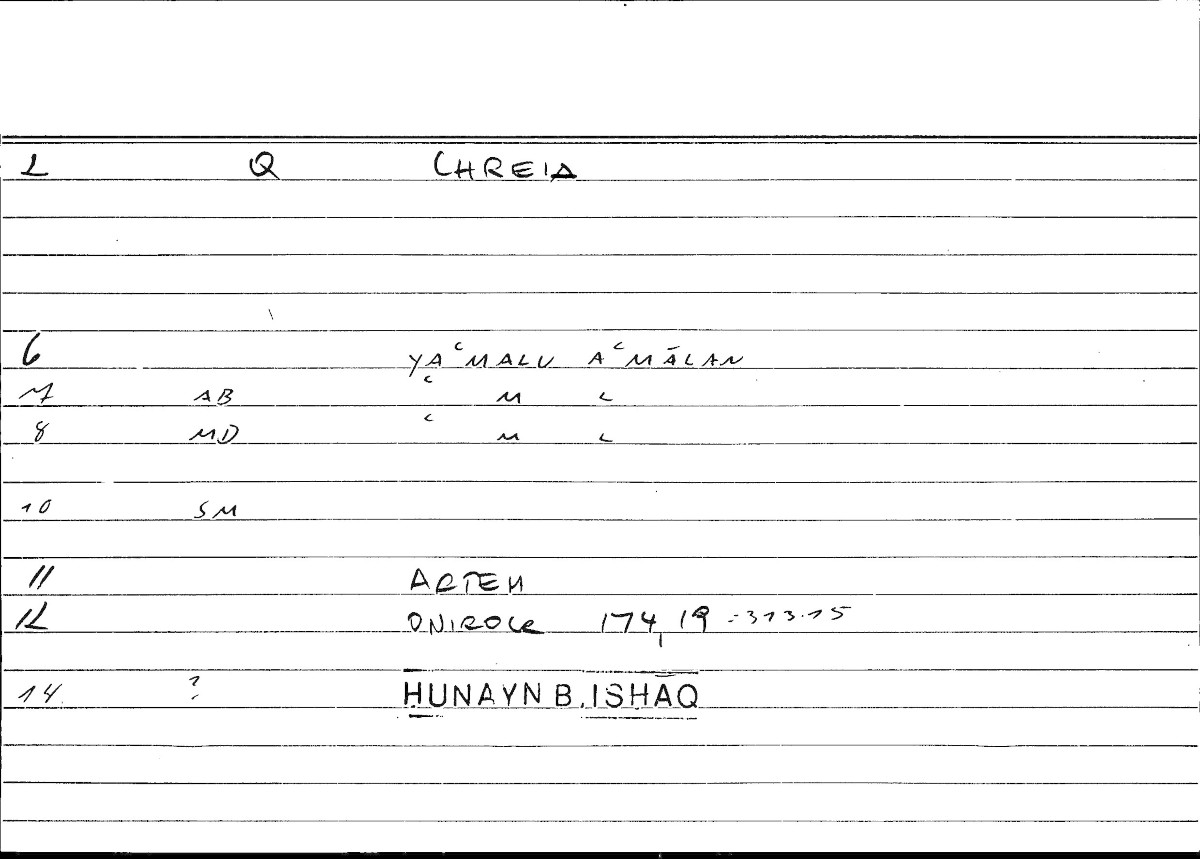 L Q CHREIA
6 YAᶜMALU AᶜMĀLAN
7 AB ᶜ M L
8 MD ᶜ M L
10 SM
11 ARTEM
12 ONIROCR 174,19 = 313.15
14. ? HUNAYN B. ISHĀQ